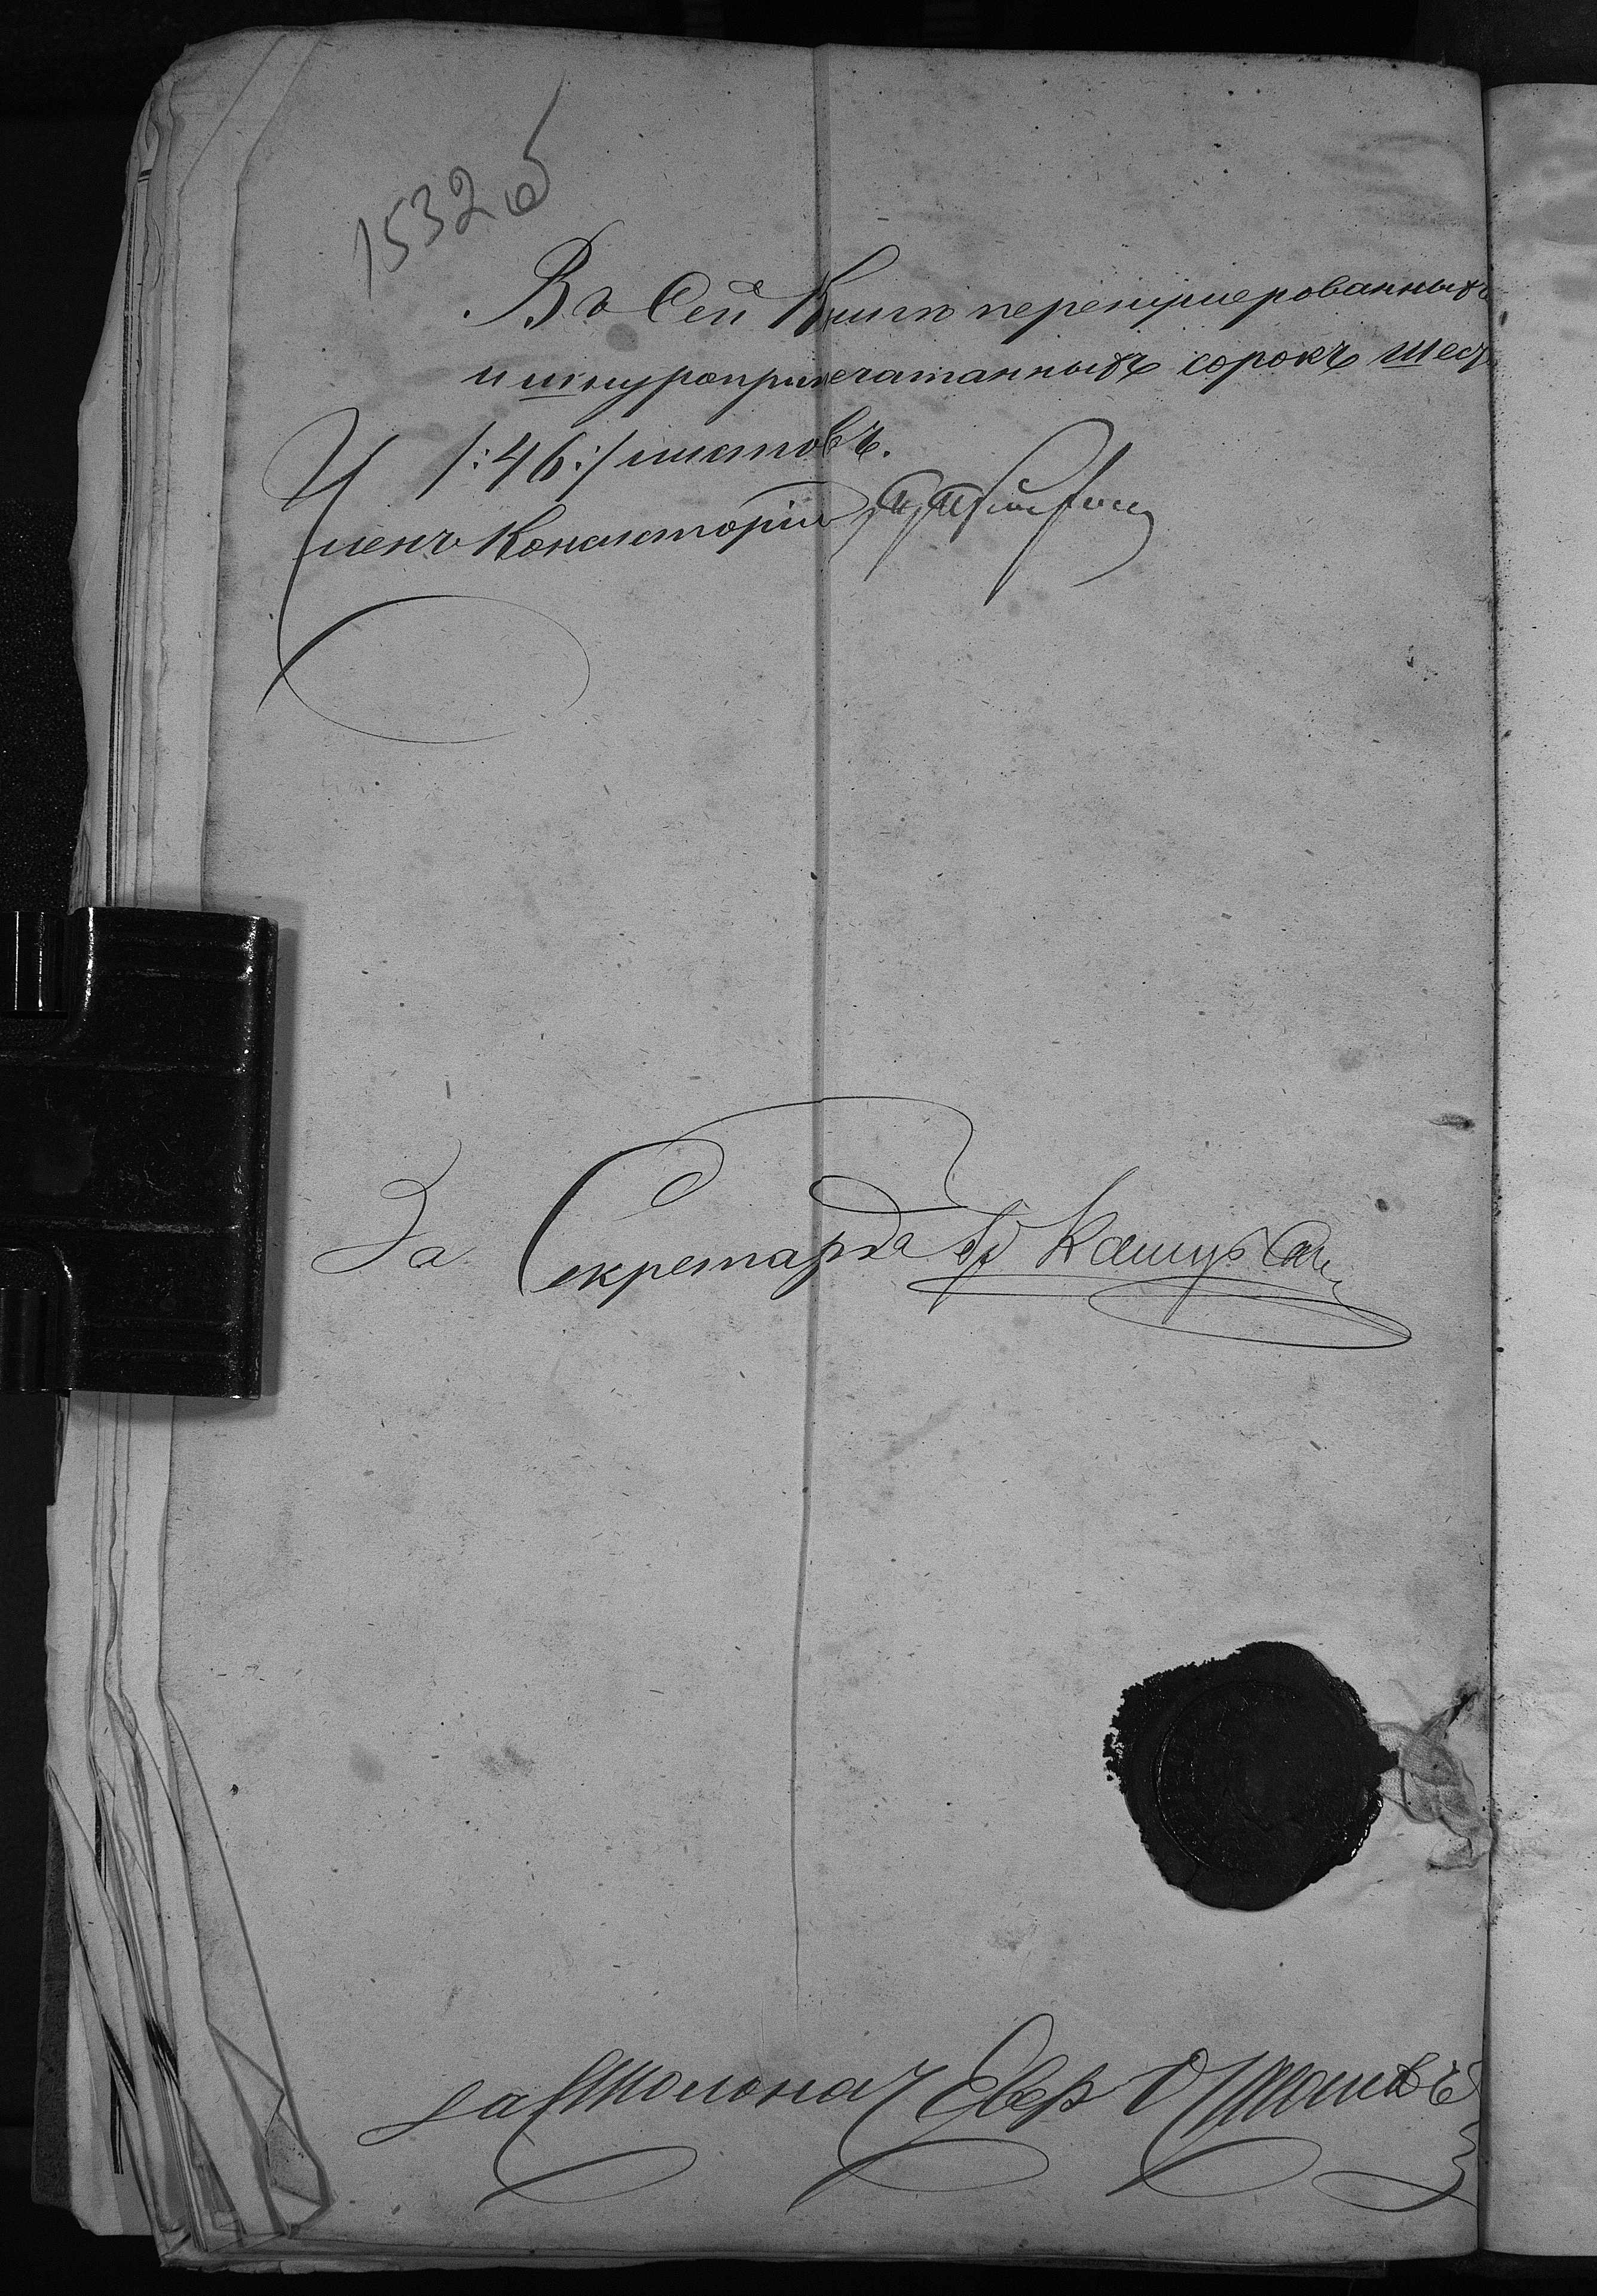 1532 об
Въ Сей Книгѣ перенумерованныхъ
и шнуропримечатанныхъ сорокъ шесть
/:46:/ листовъ.
Членъ Консисторіи
За Секретаря
За Столонач.